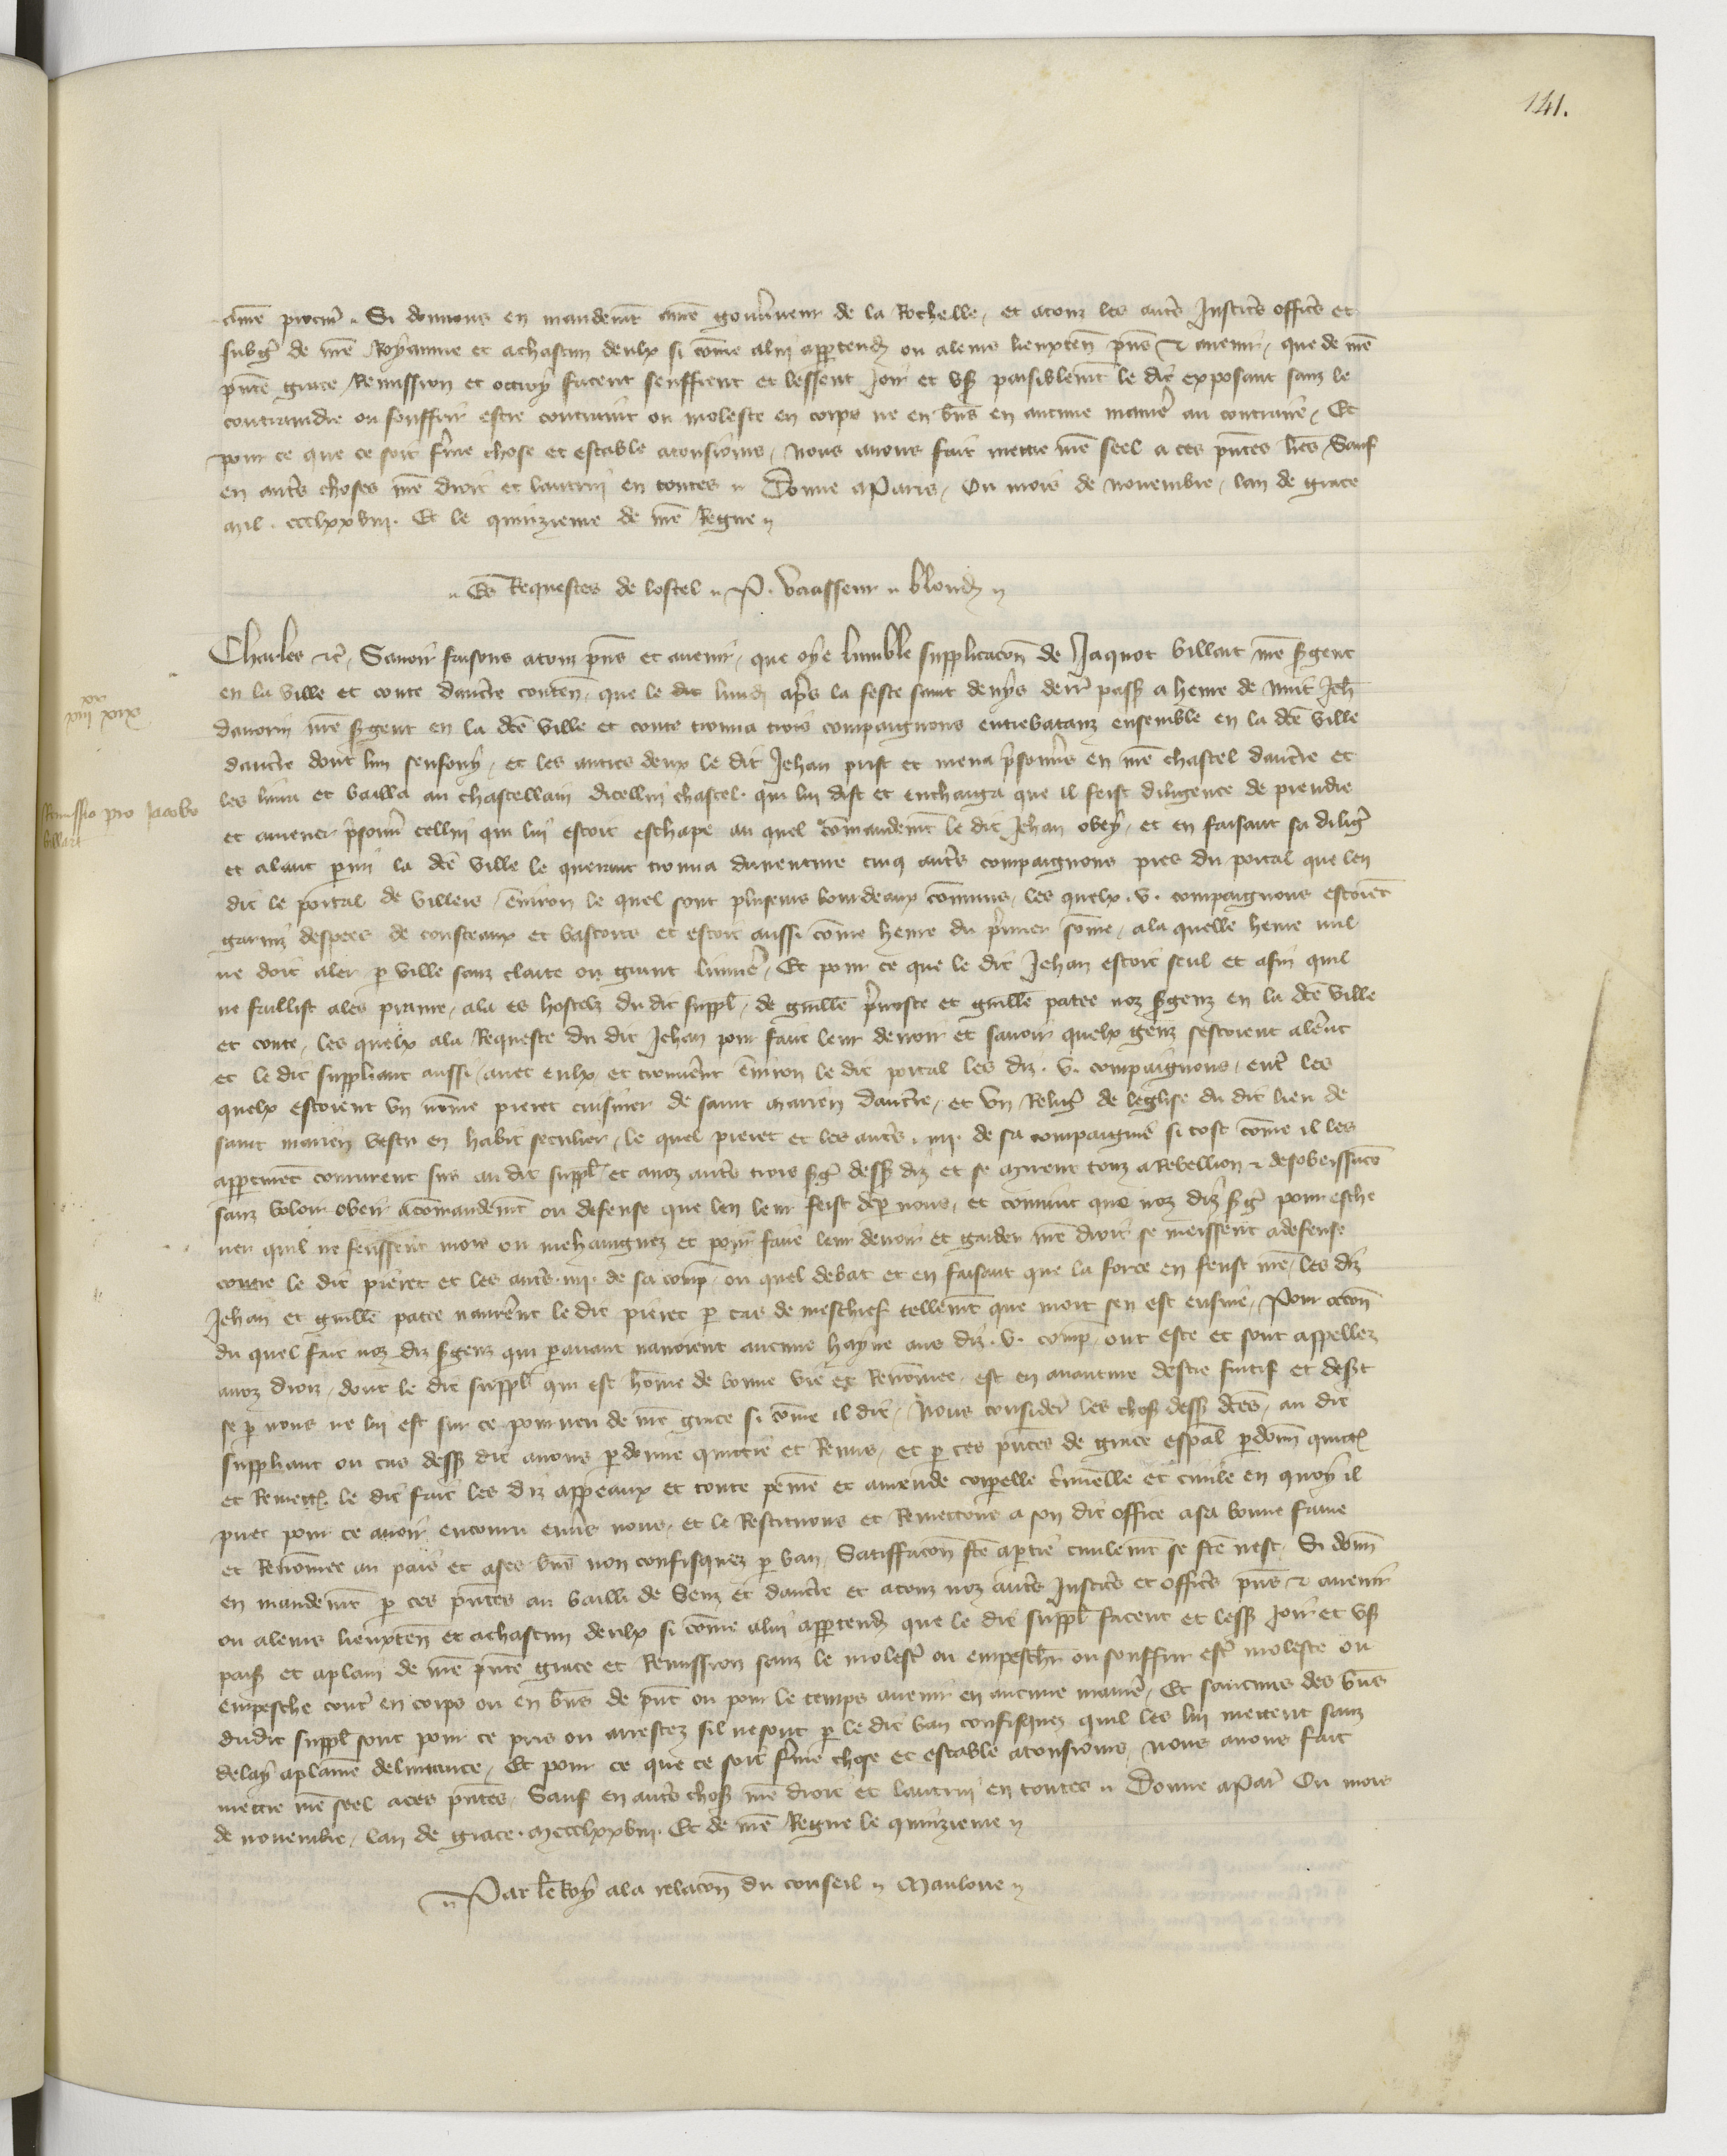 141.
nre procur. Si donnons en mandemt anre gouverneur de la Rochelle, et atouz les autres Justiciers officiers et
subgez de nre Royaume et achascun deulx si comme alui appartendra ou aleurs lieuxten pns & avenir, que de nre
pnte grace Remission et octroy facent seuffrent et lessent Joir et user paisiblemt le dit exposant sanz le
contraindre ou souffrir estre contraint ou moleste en corps ne en biens en aucune maniere au contraire, Et
pour ce que ce soit ferme chose et estable atousiours, Nous avons fait mettre nre seel a ces pntes lres, Sauf
en autres choses nre droit et lautrui en toutes. Donne aParis, Ou mois de novembre, lan de grace
mil. ccclxxviii. Et le quinzieme de nre Regne
Es Requestes de lostel. P. Vaasseur. blond
Charles etc. Savoir faisons atouz pns et avenir, que oye lumble supplicacon de Jaquot billart nre sergent
en la ville et conte daucerre conten, que le dit lundi apres la feste saint denys derr passe a heure de nuit Jeh
davorin nre sergent en la dte ville et conte trouva trois compaignons entrebatanz ensemble en la dte ville
daucerre dont lun senfouy, et les autres deux le dit Jehan prist et mena prisonniers en nre chastel daucerre et
les livra et bailla au chastellain dicellui chastel. qui lui dist et encharga que il feist diligence de prendre
et amener prisonnier cellui qui lui estoit eschape au quel commandemt le dit Jehan obey, et en faisant sa dilig
et alant parmi la dte ville le querant trouva daventure cinq autres compaignons pres du portal que len
dit le portal de villers, environ le quel sont plusieurs bourdeaux communs, les quelx .v. compaignons estoient
garniz despees de cousteaux et bastons et estoit aussi comme heure du premier somme, ala quelle heure nul
ne doit aler par ville sanz clarte ou grant lumiere, Et pour ce que le dit Jehan estoit seul et afin quil
ne faillist ales prenre, ala es hostelz du dit suppl, de guille prevoste et guille patee noz sergenz en la dte ville
et conte, les quelx ala Requeste du dit Jehan pour faire leur devoir et savoir quelx genz sestoient alerent
et le dit suppliant aussi avec eulx, et trouverent environ le dit portal les diz .v. compaignons, entre les
quelx estoient un nomme pieret cuisinier de saint marien daucerre, et un Relig de leglise du dit lieu de
saint marien vestu en habit seculier, le quel pieret et les autres .iiii. de sa compaignie si tost comme il les
appercurent coururent sus au dit suppl et anoz autres trois serg dess diz et se mirent touz aRebellion & desobeissance
sanz voloir obeir acommandemt ou defense que len leur feist de par nous, et convint que noz diz serg pour esche
ver quil ne feussent mors ou mehaignez et pour faire leur devoir et garder nre droit se meissent adefense
contre le dit pieret et les autres .iiii. de sa comp, ou quel debat et en faisant que la force en feust nre, les diz
Jehan et guille patee navrerent le dit pieret par cas de meschief tellemt que mort sen est ensuie, Pour occon
du quel fait noz diz sergenz qui paravant navoient aucune hayne aus diz .v. comp, ont este et sont appellez
anoz droiz, dont le dit suppl qui est homme de bonne vie et Renommee, est en avanture destre fuitif et desert
se par nous ne lui est sur ce pourveu de nre grace si comme il dit, Nous consider les choses dess dtes, au dit
suppliant ou cas dess dit avons pardonne quittie et Remis, et par ces pntes de grace espal pardonn quitt
et Remett le dit fait les diz appeaux et toute peine et amende corporelle criminelle et civile en quoy il
puet pour ce avoir encouru envers nous, et le Restituons et Remettons a son dit office asa bonne fame
et Renommee au pais et ases biens non confisquez par ban, Satiffacon fte apartie civilemt se fte nest, Si donn
en mandemt par ces pntes au bailli de Senz et daucerre et atouz noz autres Justiciers et officiers pns & avenir
ou aleurs lieuxten et achascun deulx si comme alui appartend que le dit suppl facent et less Joir et user
pais et aplain de nre pnte grace et Remission sanz le molester ou empescher ou souffrir estre moleste ou
empesche contre en corps ou en biens de pnt ou pour le temps avenir en aucune maniere, Et saucuns des biens
dudit suppl sont pour ce pris ou arrestez sil nesont par le dit ban confisquez quil les lui mettent sanz
delay aplaine delivrance, Et pour ce que ce soit ferme chose et estable atousiours, nous avons fait
mettre nre seel aces pntes. Sauf en autres choses nre droit et lautrui en toutes. Donne aPar Ou mois
de novembre, lan de grace. mccclxxviii. Et de nre Regne le quinzieme
Par le Roy ala relacon du conseil. Mauloue
Remissio pro Jacobo
billart